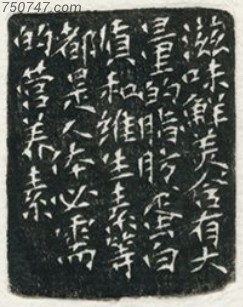 750747.com
滋味鮮美含有大
量的脂肪蛋白
質和維生素等
都是人体必需
的营养素